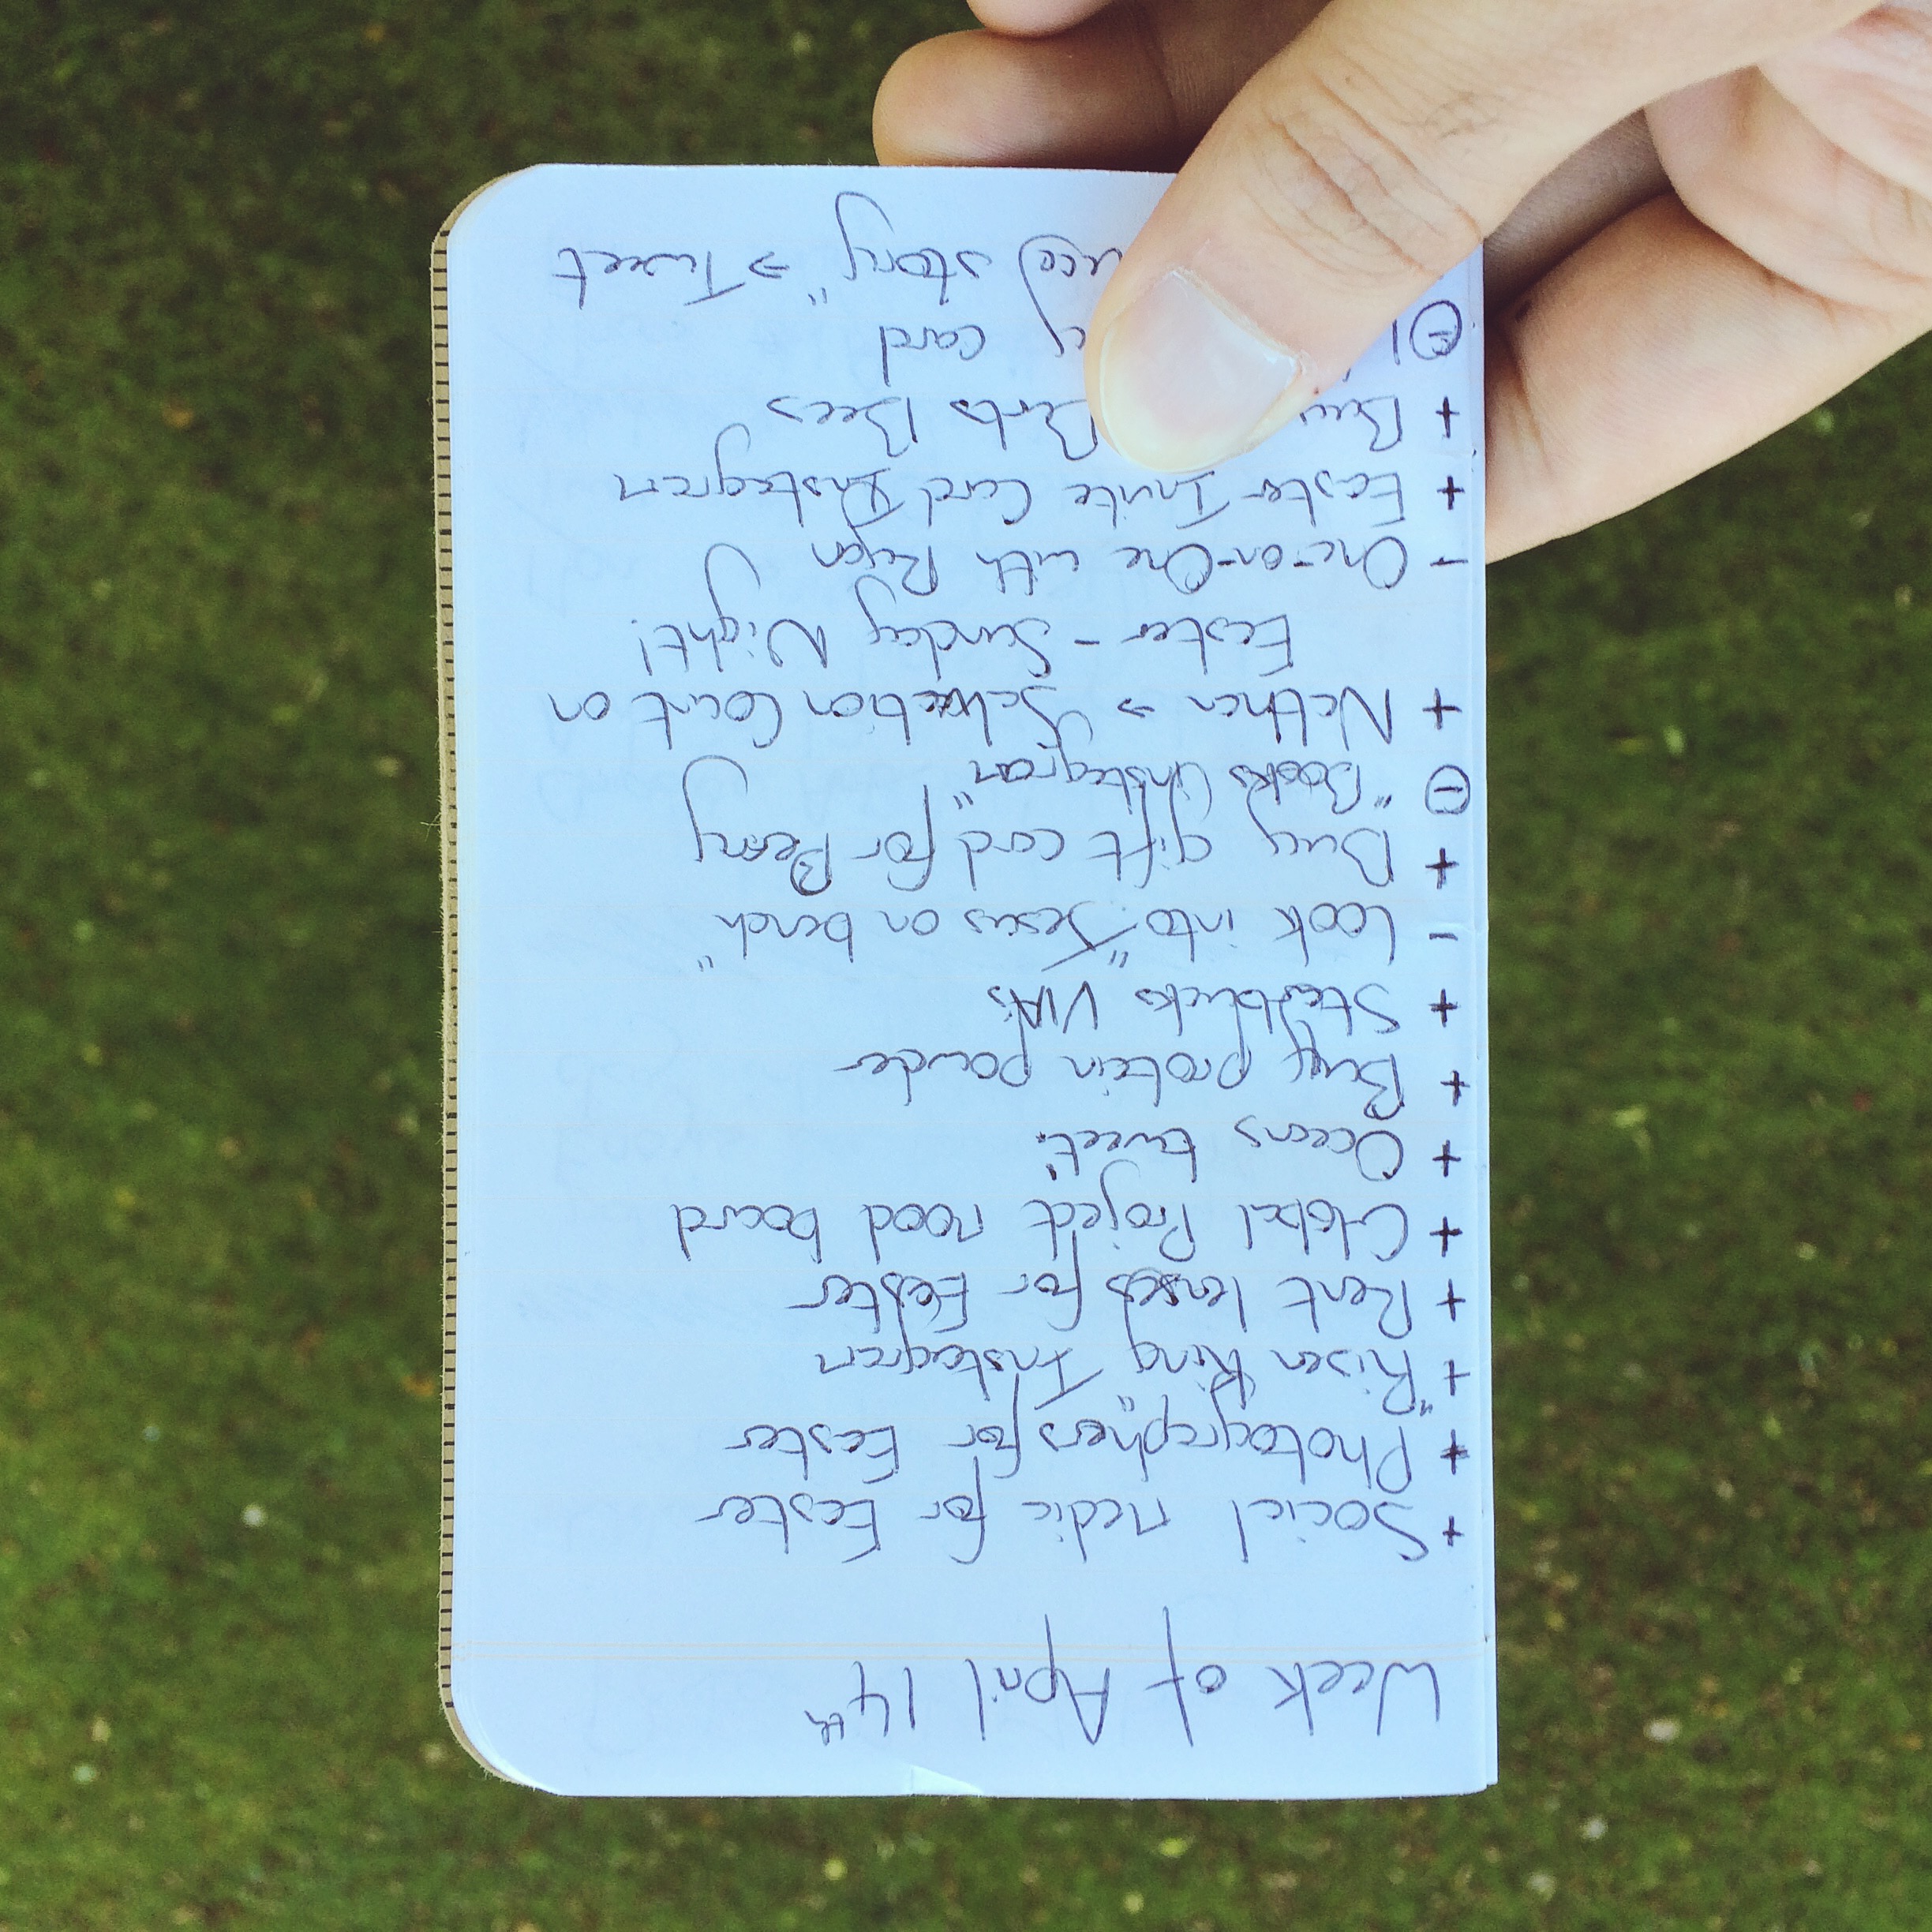 Week of April 14th
+ Social media for Easter
+ Photographers for Easter
+ "Risen King" Instagram
+ Rent lenses for Easter
+ Global Project mood board
+ Oceans tweet?
+ Buy protein powder
+ Starbucks VIAs
- Look into "Jesus on bench"
+ Buy gift card for Penny
⊖ "Books Instagram"
+ Nathan → Salvation Count on
Easter - Sunday Night!
- One-on-One with Ryan
+ Easter Invite Card Instagram
+ Burts Bees
⊖ card
story" → Tweet